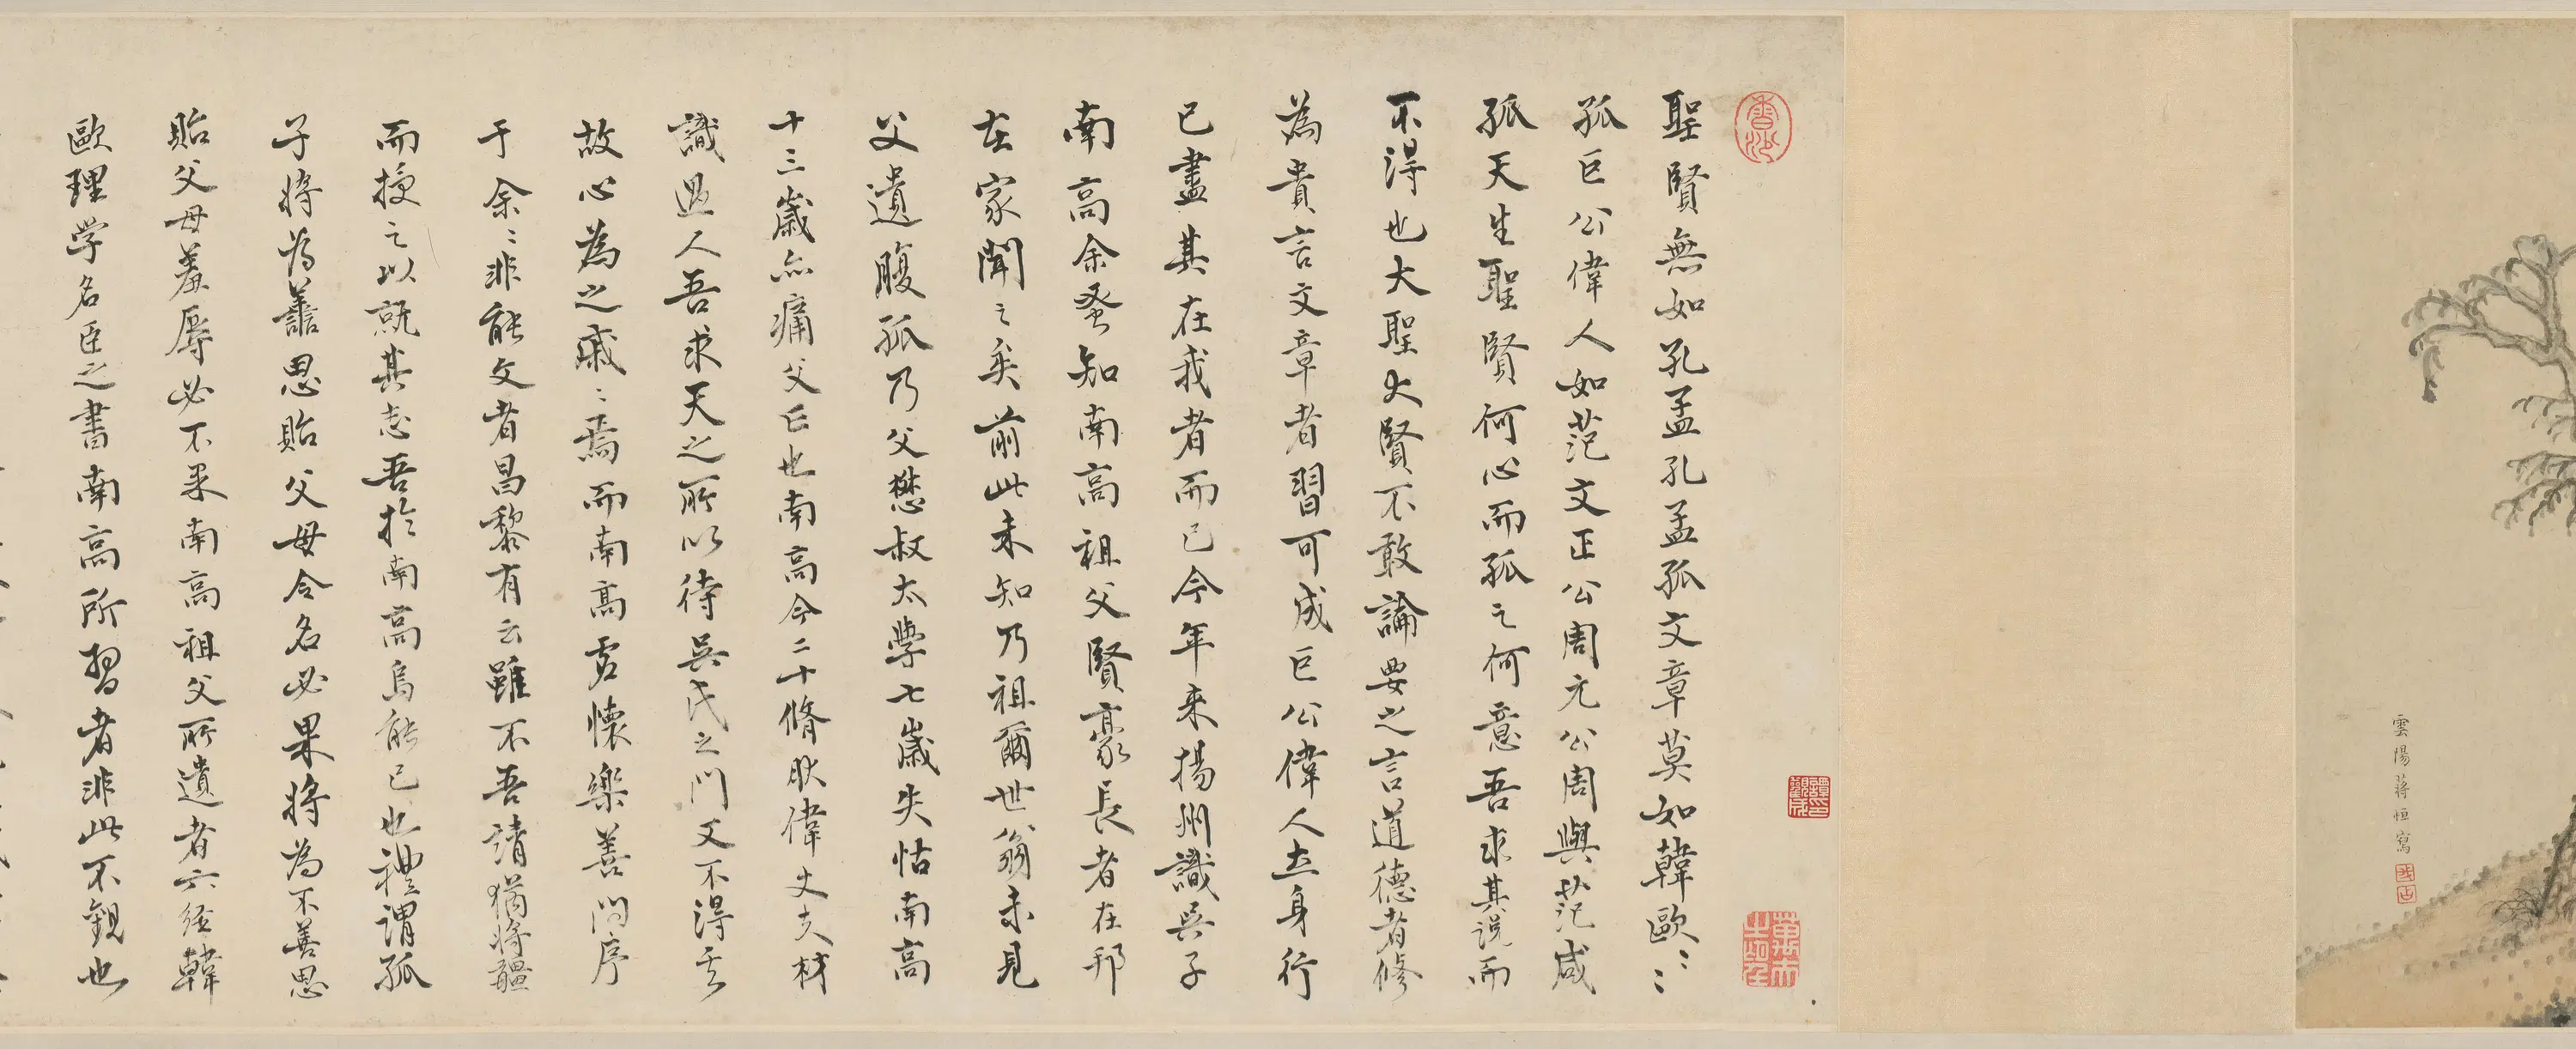 雲陽蔣恒寫
聖賢無如孔孟孔孟孤文章莫如韓歐〻〻
孤巨公偉人如范文正公周元公周與范咸
孤天生聖賢何心而孤之何意吾求其説而
不得也大聖大賢不敢論要之言道德者修
為貴言文章者習可成巨公偉人立身行
己盡其在我者而已今年来揚州識吳子
南高余蚤知南高祖父賢豪長者在邦
在家聞之矣前此未知乃祖爾世翁未見
父遺腹孤乃父懋叔太學七歲失怙南高
十三歲亦痛父亡也南高今二十脩然偉丈夫材
識過人吾求天之所以待吳氏之門又不得其
故心為之戚〻焉而南高虛懷樂善問序
于余〻非能文者昌黎有云雖不吾請猶將彊
而授之以就其志吾於南高烏能已也禮謂孤
子將為善思貽父母令名必果將為不善思
貽父母羞辱必不果南高祖父所遺者六經韓
歐理学名臣之書南高所習者非此不觀也